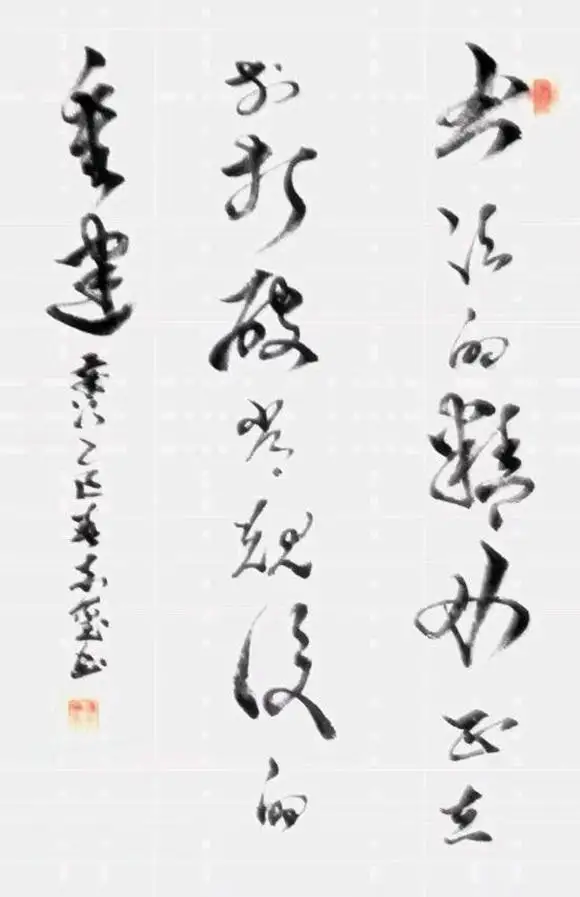 书法的精妙正在
於打破常规後的
重建 乙巳春 书